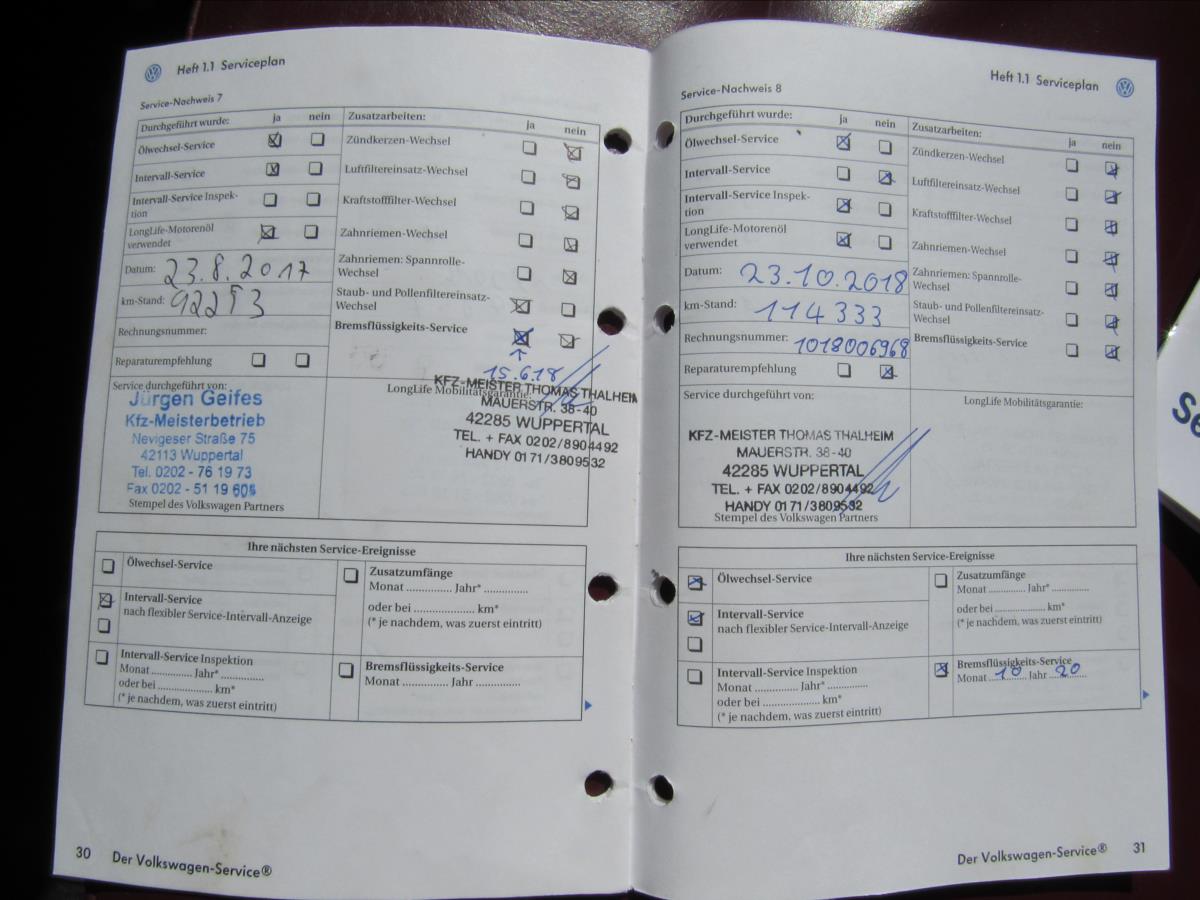 Heft 1.1 Serviceplan
Service-Nachweis 7
Durchgeführt wurde: ja nein
Ölwechsel-Service
Intervall-Service
Intervall-Service Inspek-
tion
LongLife-Motorenöl
verwendet
Datum: 23.8.2017
km-Stand: 92253
Rechnungsnummer:
Reparaturempfehlung
Zusatzarbeiten: ja nein
Zündkerzen-Wechsel
Luftfiltereinsatz-Wechsel
Kraftstofffilter-Wechsel
Zahnriemen-Wechsel
Zahnriemen: Spannrolle-
Wechsel
Staub- und Pollenfiltereinsatz-
Wechsel
Bremsflüssigkeits-Service
15.6.18
Service durchgeführt von:
Jürgen Geifes
Kfz-Meisterbetrieb
Nevigeser Straße 75
42113 Wuppertal
Tel. 0202 - 76 19 73
Fax 0202 - 51 19 605
Stempel des Volkswagen Partners
LongLife Mobilitätsgarantie:
KFZ-MEISTER THOMAS THALHEIM
MAUERSTR. 38-40
42285 WUPPERTAL
TEL. + FAX 0202/8904492
HANDY 0171/3809532
Ihre nächsten Service-Ereignisse
Ölwechsel-Service
Intervall-Service
nach flexibler Service-Intervall-Anzeige
Intervall-Service Inspektion
Monat .............. Jahr* ..............
oder bei .................... km*
(* je nachdem, was zuerst eintritt)
Zusatzumfänge
Monat .............. Jahr* ..............
oder bei .................... km*
(* je nachdem, was zuerst eintritt)
Bremsflüssigkeits-Service
Monat .............. Jahr ..............
30 Der Volkswagen-Service®
Heft 1.1 Serviceplan
Service-Nachweis 8
Durchgeführt wurde: ja nein
Ölwechsel-Service
Intervall-Service
Intervall-Service Inspek-
tion
LongLife-Motorenöl
verwendet
Datum: 23.10.2018
km-Stand: 114333
Rechnungsnummer: 1018006968
Reparaturempfehlung
Zusatzarbeiten: ja nein
Zündkerzen-Wechsel
Luftfiltereinsatz-Wechsel
Kraftstofffilter-Wechsel
Zahnriemen-Wechsel
Zahnriemen: Spannrolle-
Wechsel
Staub- und Pollenfiltereinsatz-
Wechsel
Bremsflüssigkeits-Service
Service durchgeführt von:
KFZ-MEISTER THOMAS THALHEIM
MAUERSTR. 38-40
42285 WUPPERTAL
TEL. + FAX 0202/8904492
HANDY 0171/3809532
Stempel des Volkswagen Partners
LongLife Mobilitätsgarantie:
Ihre nächsten Service-Ereignisse
Ölwechsel-Service
Intervall-Service
nach flexibler Service-Intervall-Anzeige
Intervall-Service Inspektion
Monat .............. Jahr* ..............
oder bei .................... km*
(* je nachdem, was zuerst eintritt)
Zusatzumfänge
Monat .............. Jahr* ..............
oder bei .................... km*
(* je nachdem, was zuerst eintritt)
Bremsflüssigkeits-Service
Monat 10 Jahr 20
Der Volkswagen-Service® 31
Se